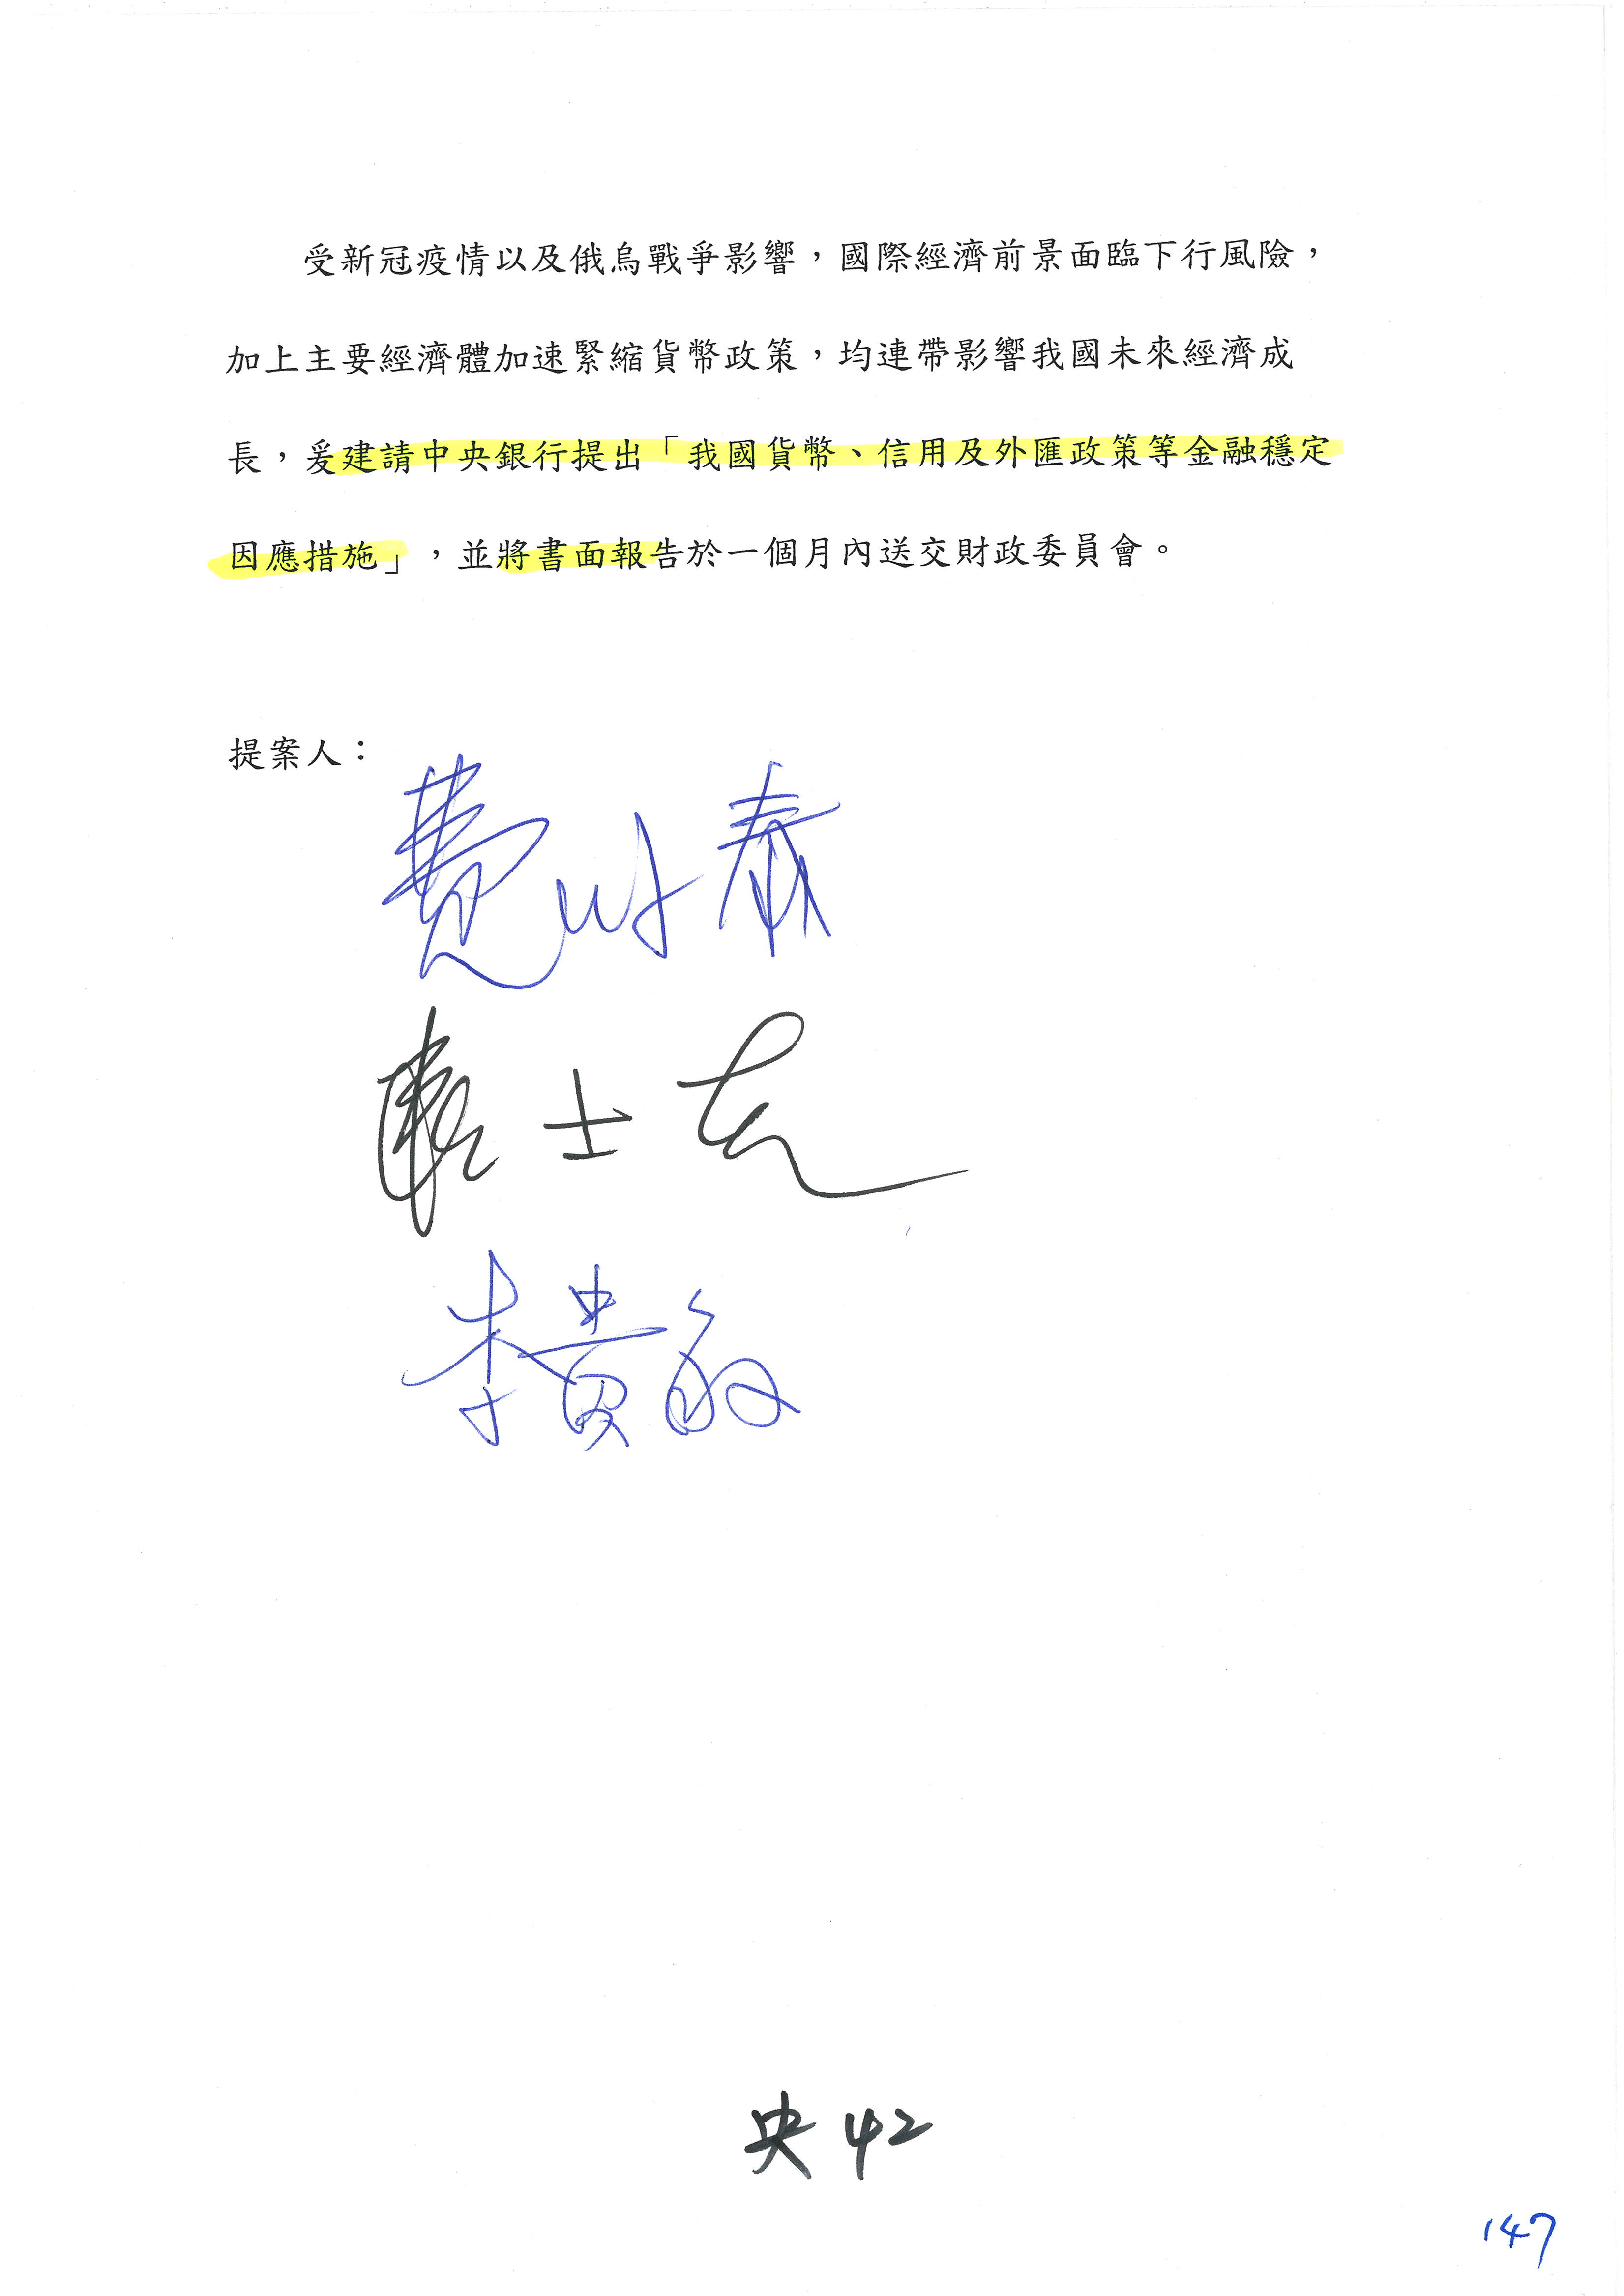 受新冠疫情以及俄烏戰爭影響，國際經濟前景面臨下行風險，
加上主要經濟體加速緊縮貨幣政策，均連帶影響我國未來經濟成
長，爰建請中央銀行提出「我國貨幣、信用及外匯政策等金融穩定
因應措施」，並將書面報告於一個月內送交財政委員會。
提案人：
費鴻泰
賴士葆
李貴敏
央42
147